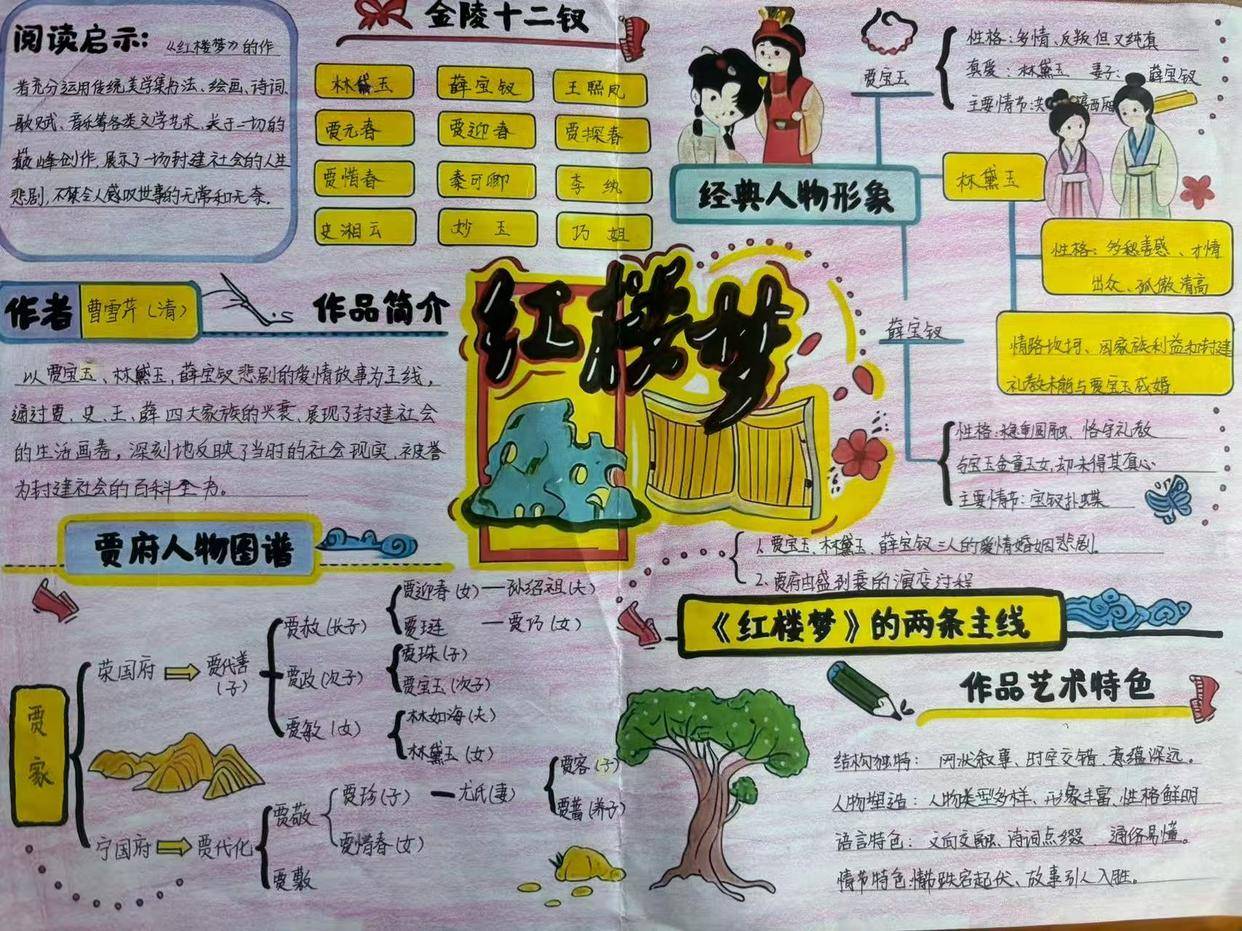 阅读启示：《红楼梦》的作
者充分运用传统美学集书法、绘画、诗词、
歌赋、音乐等各类文学艺术、关于一切的
巅峰创作，展示了一场封建社会的人生
悲剧，不禁令人感叹世事的无常和无奈。
金陵十二钗
林黛玉 薛宝钗 王熙凤
贾元春 贾迎春 贾探春
贾惜春 秦可卿 李纨
史湘云 妙玉 巧姐
作者 曹雪芹（清）
作品简介
以贾宝玉、林黛玉、薛宝钗悲剧的爱情故事为主线，
通过贾、史、王、薛四大家族的兴衰、展现了封建社会
的生活画卷，深刻地反映了当时的社会现实，被誉
为封建社会的百科全书。
红楼梦
经典人物形象
贾宝玉
性格：多情、反叛但又纯真
真爱：林黛玉 妻子：薛宝钗
主要情节：西厢
林黛玉
性格：多愁善感、才情
出众、孤傲清高
情路坎坷、因家族利益和封建
礼教未能与贾宝玉成婚.
薛宝钗
性格：稳重圆融、恪守礼教
与宝玉金童玉女，却未得其真心
主要情节：宝钗扑蝶
贾府人物图谱
贾家
荣国府 贾代善（子）
贾赦（长子）
贾迎春（女）—孙绍祖（夫）
贾琏 —贾巧（女）
贾政（次子）
贾珠（子）
贾宝玉（次子）
贾敏（女）
林如海（夫）
林黛玉（女）
宁国府 贾代化
贾敬
贾珍（子）—尤氏（妻）
贾容（子）
贾蔷（养子）
贾惜春（女）
贾敷
1.贾宝玉、林黛玉、薛宝钗三人的爱情婚姻悲剧。
2.贾府由盛到衰的演变过程
《红楼梦》的两条主线
作品艺术特色
结构独特：网状叙事、时空交错、意蕴深远。
人物塑造：人物类型多样、形象丰富、性格鲜明
语言特色：文白交融、诗词点缀、通俗易懂。
情节特色：情节跌宕起伏、故事引人入胜。